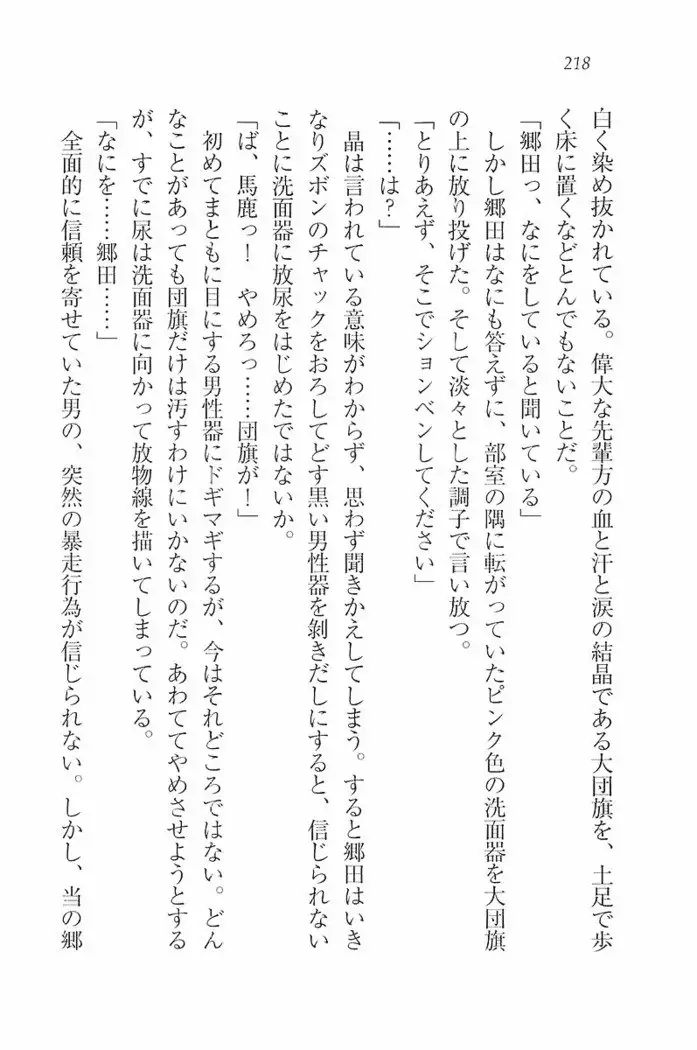 218
白く染め抜かれている。偉大な先輩方の血と汗と涙の結晶である大団旗を、土足で歩
く床に置くなどとんでもないことだ。
「郷田っ、なにをしていると聞いている」
しかし郷田はなにも答えずに、部室の隅に転がっていたピンク色の洗面器を大団旗
の上に放り投げた。そして淡々とした調子で言い放つ。
「とりあえず、そこでションベンしてください」
「……は？」
晶は言われている意味がわからず、思わず聞きかえしてしまう。すると郷田はいき
なりズボンのチャックをおろしてどす黒い男性器を剝きだしにすると、信じられない
ことに洗面器に放尿をはじめたではないか。
「ば、馬鹿っ！　やめろっ……団旗が！」
初めてまともに目にする男性器にドギマギするが、今はそれどころではない。どん
なことがあっても団旗だけは汚すわけにいかないのだ。あわててやめさせようとする
が、すでに尿は洗面器に向かって放物線を描いてしまっている。
「なにを……郷田……」
全面的に信頼を寄せていた男の、突然の暴走行為が信じられない。しかし、当の郷